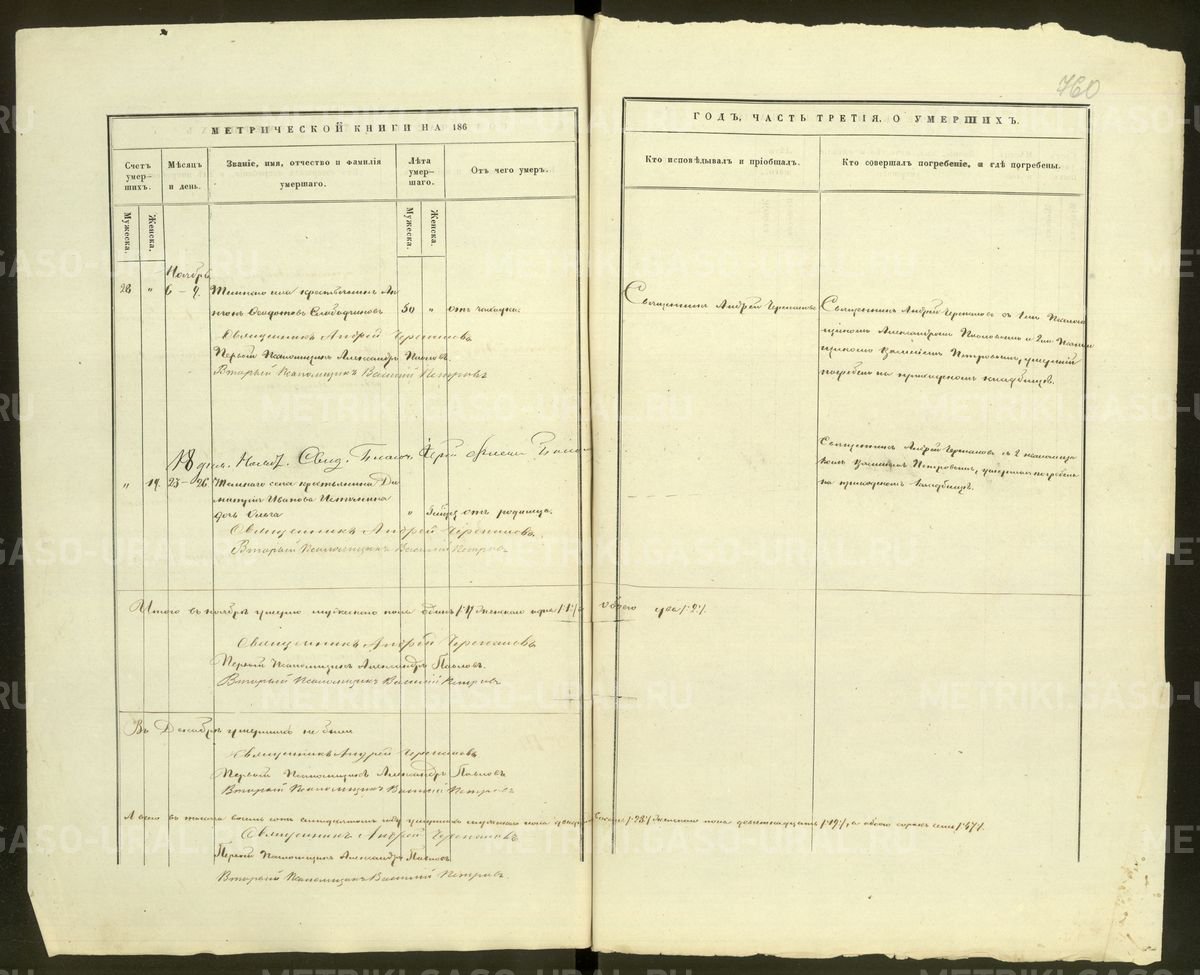 760
МЕТРИЧЕСКОЙ КНИГИ НА 186
ГОДЪ, ЧАСТЬ ТРЕТІЯ, О УМЕРШИХЪ.
Счетъ умер-
шихъ.
Мужеска.
Женска.
Мѣсяцъ
и день.
Званіе, имя, отчество и фамилія
умершаго.
Лѣта
умер-
шаго.
Мужеска.
Женска.
Отъ чего умеръ.
Кто исповѣдывалъ и пріобщалъ.
Кто совершалъ погребеніе, и гдѣ погребены.
Ноябрь
28 " 6 – 9. села крестьянинъ
Слободчиковъ 50 " отъ чахотки.
Священникъ Андрей Черепановъ
Первый Псаломщикъ Александръ Павловъ.
Вторый Псаломщикъ Василій Петровъ
Священникъ Андрей Черепановъ
Священникъ Андрей Черепановъ съ 1мъ Псалом
щикомъ Александромъ Павловымъ и 2мъ Псалом
щикомъ Василіемъ Петровымъ, умершій
погребенъ на приходскомъ кладбищѣ.
18
" 19. 23 – 26. села крестьянина Ди
митрія Иванова
дочь Ольга " отъ родимца.
Священникъ Андрей Черепановъ.
Вторый Псаломщикъ Василій Петровъ
Священникъ Андрей Черепановъ съ 2 псаломщи
комъ Василіемъ Петровымъ, умершая погребена
на приходскомъ кладбищѣ.
Итого въ ноябрѣ умерло мужескаго пола одинъ /:1:/ женскаго одна /:1:/ а обоего два /:2:/.
Священникъ Андрей Черепановъ
Первый Псаломщикъ Александръ Павловъ.
Вторый Псаломщикъ Василій Петровъ
Въ Декабрѣ умершихъ не было
Священникъ Андрей Черепановъ
Первый Псаломщикъ Александръ Павловъ
Вторый Псаломщикъ Василій Петровъ
А всего въ тысяча восемь сотъ семидесятомъ году умершихъ мужескаго пола двадцать восемь /:28:/ женскаго пола девятнадцать /:19:/, а обоего сорокъ семь /:47:/.
Священникъ Андрей Черепановъ
Первый Псаломщикъ Александръ Павловъ
Вторый Псаломщикъ Василій Петровъ.
METRIKI.GASO-URAL.RU